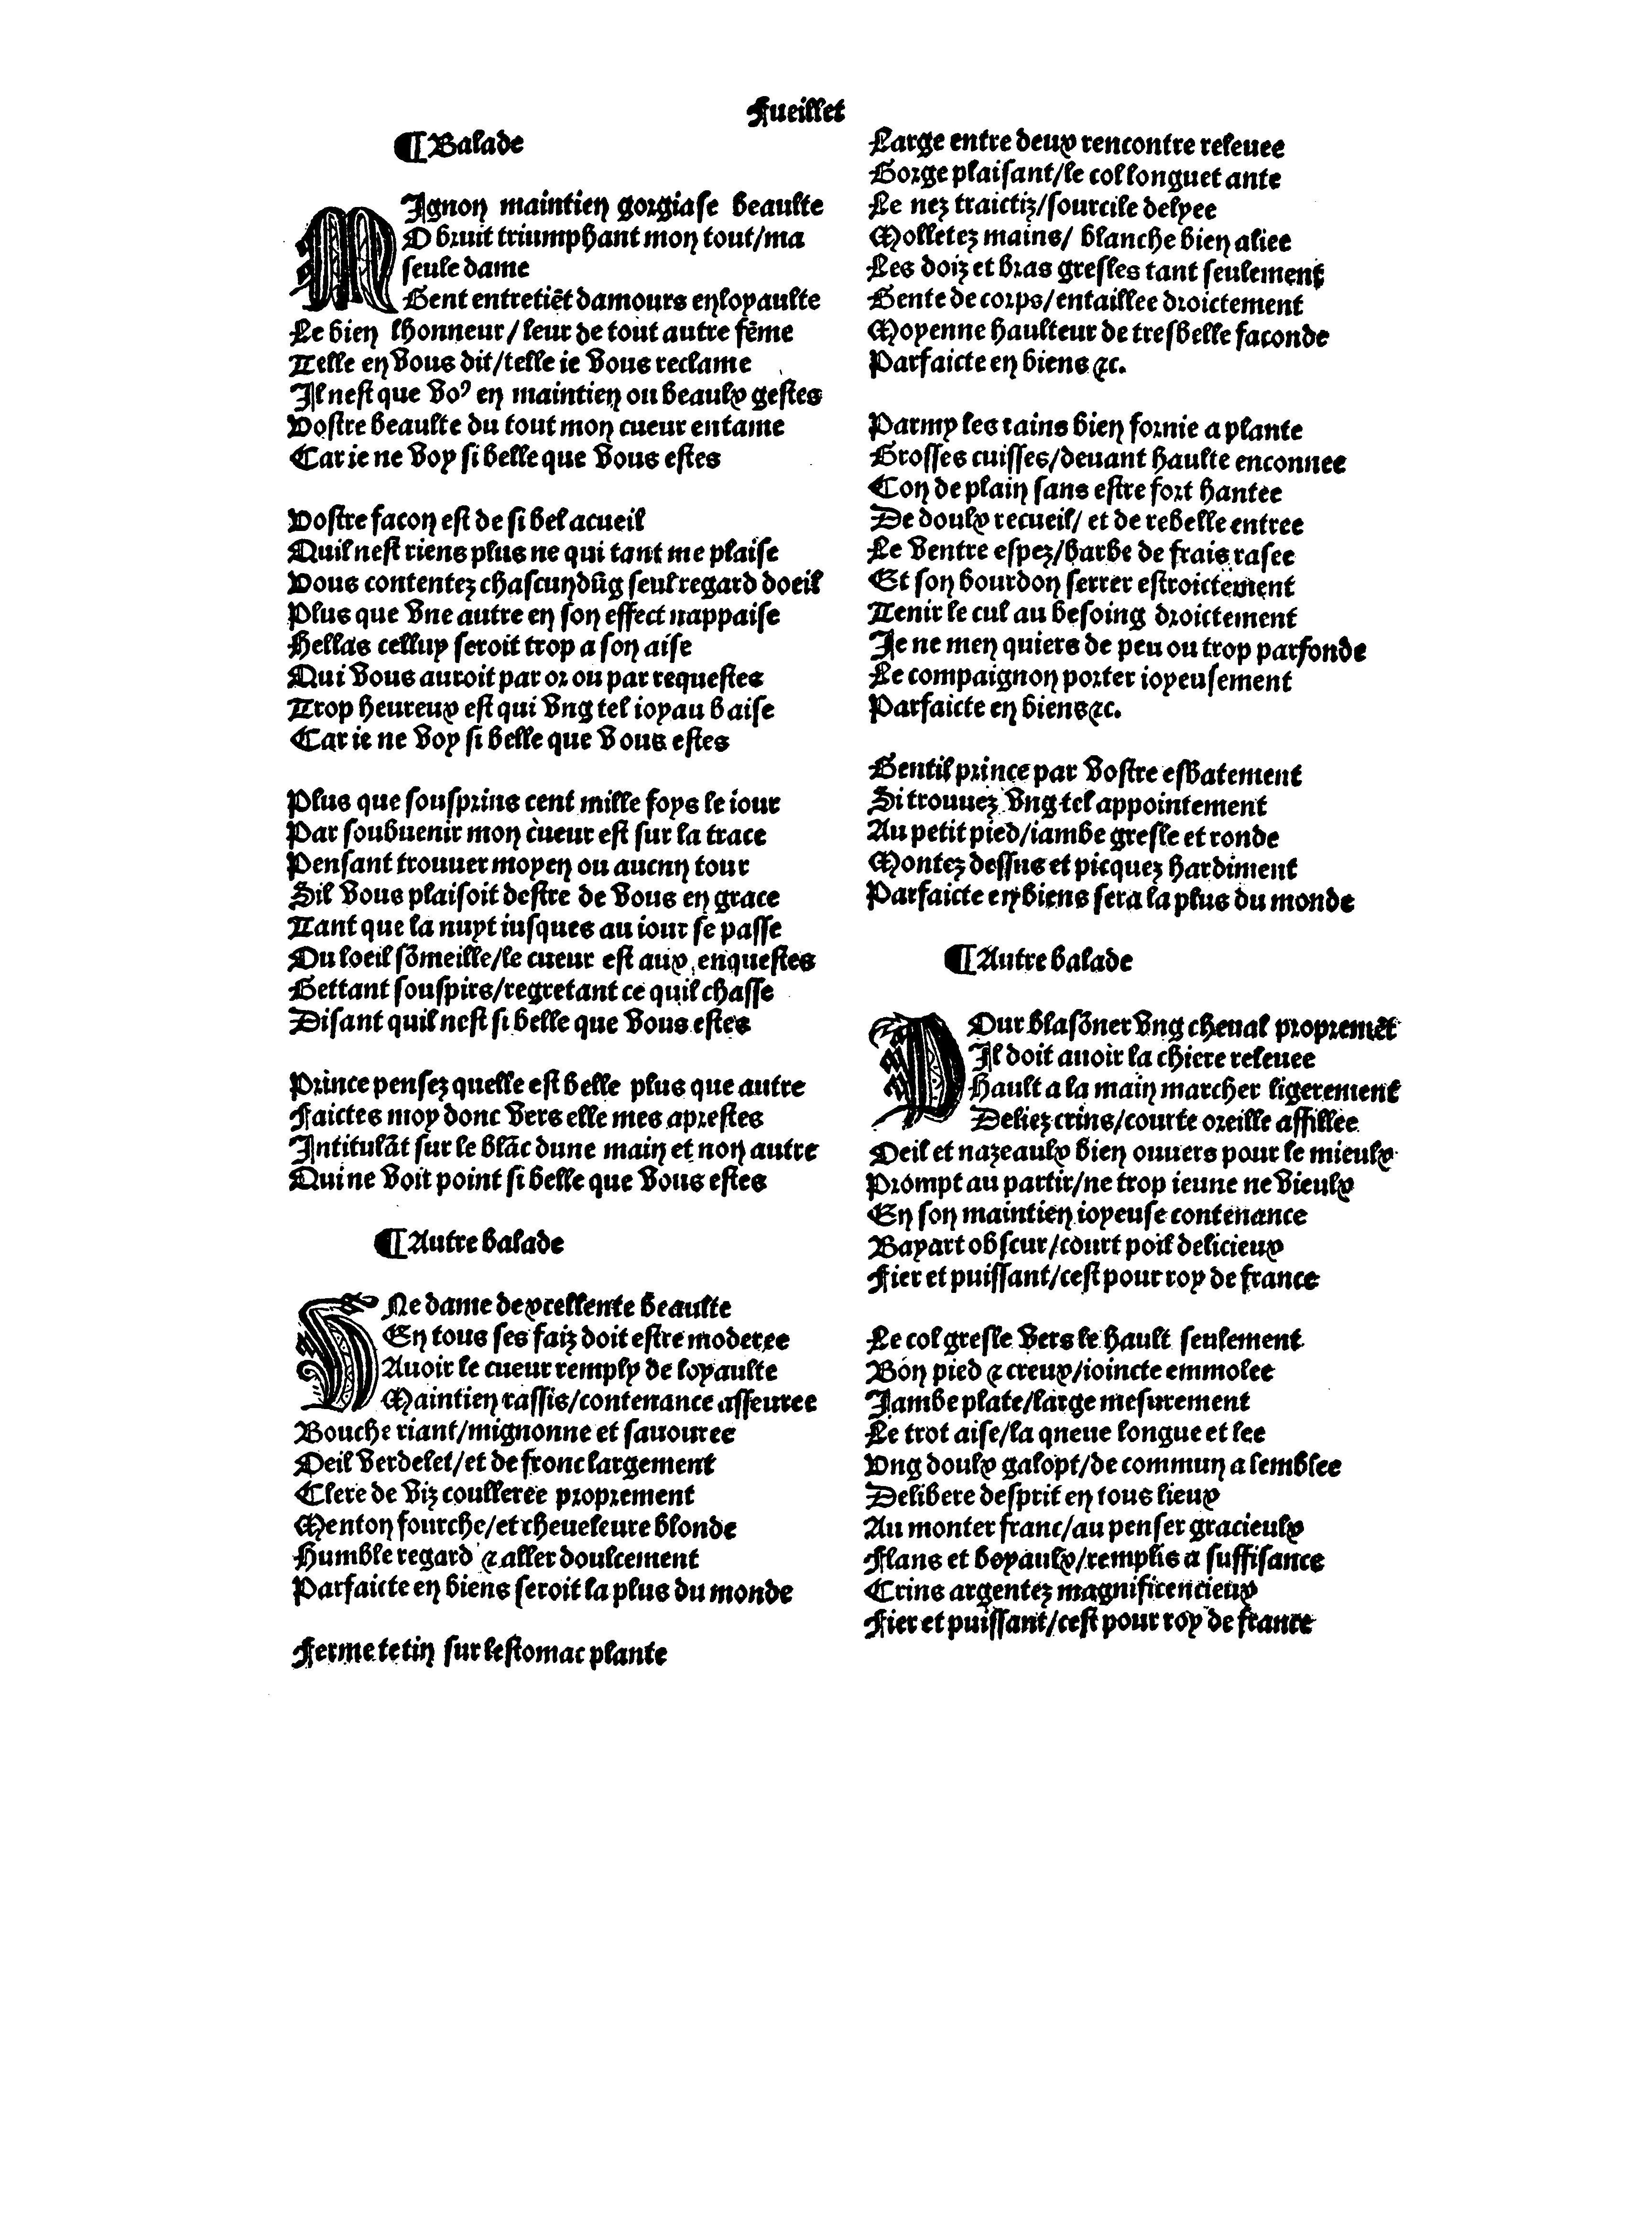 Fueillet
¶ Balade
MIgnon maintien gorgiase beaulte
O bruit triumphant mon tout/ma
seule dame
Gent entretiēt damours en loyaulte
Le bien lhonneur/leur de tout autre fēme
Telle en vous dit/telle ie vous reclame
Il nest que voꝰ en maintien ou beaulx gestes
Vostre beaulte du tout mon cueur entame
Car ie ne voy si belle que vous estes
Vostre facon est de si bel acueil
Quil nest riens plus ne qui tant me plaise
Vous contentez chascun dūg seul regard doeil
Plus que vne autre en son effect nappaise
Hellas celluy seroit trop a son aise
Qui vous auroit par or ou par requestes
Trop heureux est qui vng tel ioyau baise
Car ie ne voy si belle que vous estes
Plus que sousprins cent mille foys le iour
Par soubuenir mon cueur est sur la trace
Pensant trouuer moyen ou aucnn tour
Sil vous plaisoit destre de vous en grace
Tant que la nuyt iusques au iour se passe
Ou loeil sōmeille/le cueur est aux enquestes
Gettant souspirs/regretant ce quil chasse
Disant quil nest si belle que vous estes
Prince pensez quelle est belle plus que autre
Faictes moy donc vers elle mes aprestes
Intitulāt sur le blāc dune main et non autre
Qui ne voit point si belle que vous estes
¶ Autre balade
VNe dame dexcellente beaulte
En tous ses faiz doit estre moderee
Auoir le cueur remply de loyaulte
Maintien rassis/contenance asseuree
Bouche riant/mignonne et sauouree
Oeil verdelet/et de fronc largement
Clere de viz coulleree proprement
Menton fourche/et cheueleure blonde
Humble regard ⁊ aller doulcement
Parfaicte en biens seroit la plus du monde
Ferme tetin sur lestomac plante
Large entre deux rencontre releuee
Gorge plaisant/le col longuet ante
Le nez traictiz/sourcile delyee
Molletez mains/ blanche bien aliee
Les doiz et bras gresles tant seulement
Gente de corps/entaillee droictement
Moyenne haulteur de tresbelle faconde
Parfaicte en biens ⁊c.
Parmy les rains bien fornie a plante
Grosses cuisses/deuant haulte enconnee
Con de plain sans estre fort hantee
De doulx recueil/ et de rebelle entree
Le ventre espez/barbe de frais rasee
Et son bourdon serrer estroictement
Tenir le cul au besoing droictement
Je ne men quiers de peu ou trop parfonde
Le compaignon porter ioyeusement
Parfaicte en biens ⁊c.
Gentil prince par vostre esbatement
Si trouuez vng tel appointement
Au petit pied/iambe gresle et ronde
Montez dessus et picquez hardiment
Parfaicte en biens sera la plus du monde
¶ Autre balade
POur blasōner vng cheual propremēt
Il doit auoir la chiere releuee
Hault a la main marcher ligerement
Deliez crins/courte oreille affillee
Oeil et nazeaulx bien ouuers pour le mieulx
Prompt au partir/ne trop ieune ne vieulx
En son maintien ioyeuse contenance
Bayart obscur/court poil delicieux
Fier et puissant/cest pour roy de france
Le col gresle vers le hault seulement
Bon pied ⁊ creux/ioincte emmolee
Jambe plate/large mesurement
Le trot aise/la qneue longue et lee
Vng doulx galopt/de commun a lemblee
Delibere desprit en tous lieux
Au monter franc/au penser gracieulx
Flans et boyaulx/remplis a suffisance
Crins argentez magnificencieux
Fier et puissant/cest pour roy de france